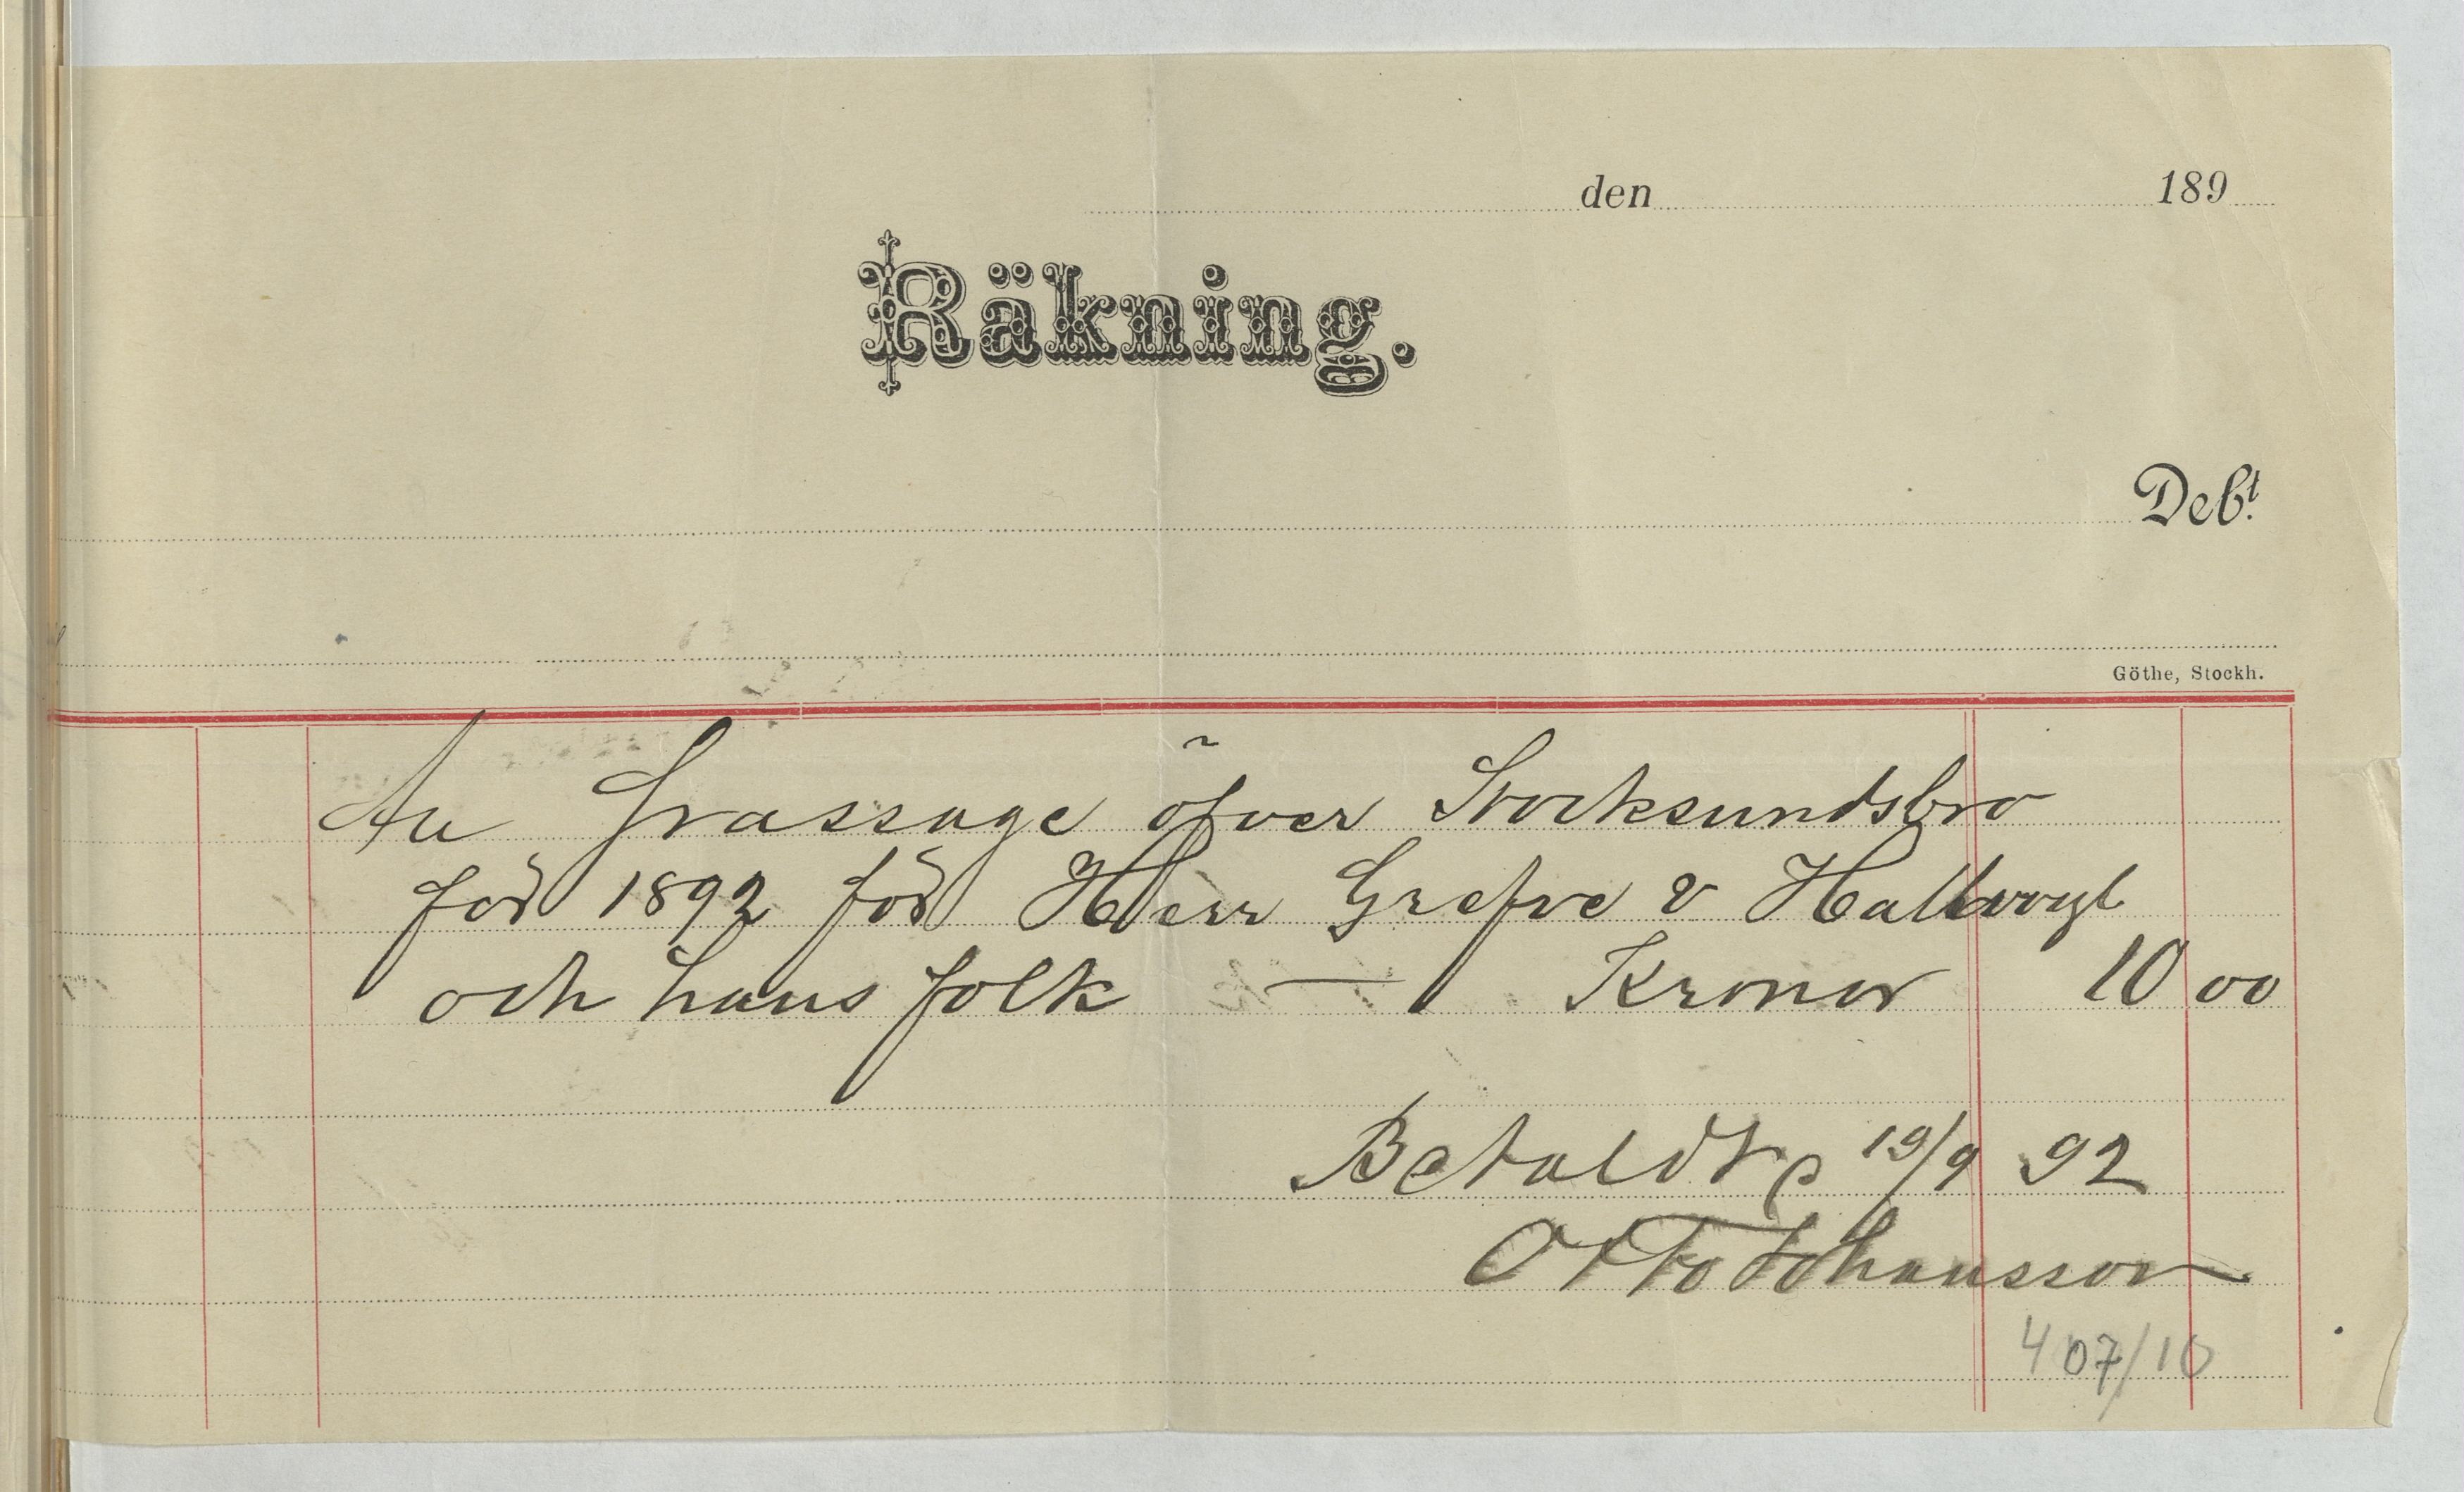 den 189
Räkning.
Debt.
Göthe, Stockh.
An Passage öfver Stocksundsbro
för 1892 för Herr Grefve v Hallwyl
och hans folk — Kronor 10 00
Betaldt 19/9 92
Otto Johansson
407/10